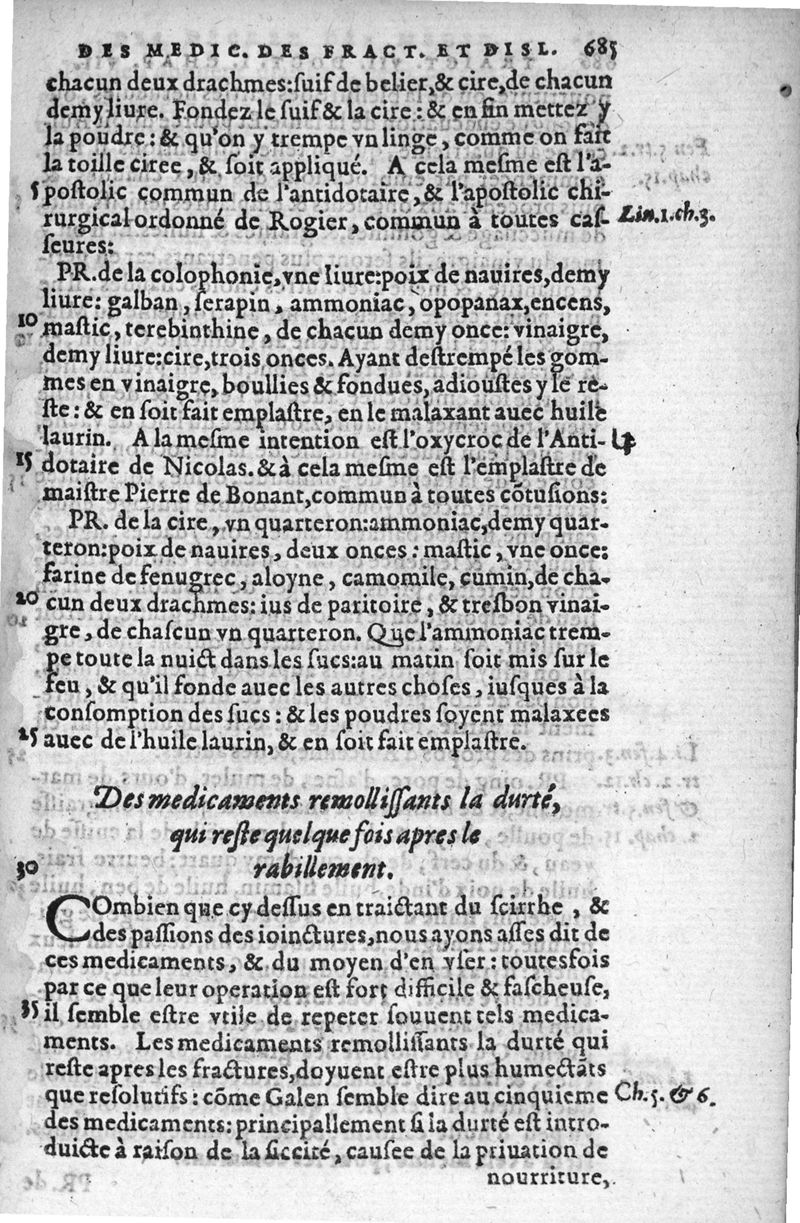 DES MEDIC. DES FRACT. ET DISL. 685
chacun deux drachmes:ſuif de belier,& cire,de chacun
demy liure. Fondez le ſuif & la cire : & en fin mettez y
la poudre : & qu'on y trempe vn linge, comme on fait
la toille ciree, & ſoit appliqué. A cela meſme eſt l'a-
5 poſtolic commun de l'antidotaire, & l'apoſtolic chi-
rurgical ordonné de Rogier, commun à toutes caſ- Liu.1.ch.3.
ſeures:
PR.de la colophonie, vne liure:poix de nauires,demy
liure: galban, ſerapin, ammoniac, opopanax,encens,
10 maſtic, terebinthine, de chacun demy once: vinaigre,
demy liure:cire,trois onces. Ayant deſtrempé les gom-
mes en vinaigre, boullies & fondues, adiouſtes y le re-
ſte : & en ſoit fait emplaſtre, en le malaxant auec huile
laurin. A la meſme intention eſt l'oxycroc de l'Anti-
15 dotaire de Nicolas. & à cela meſme eſt l'emplaſtre de
maiſtre Pierre de Bonant,commun à toutes cõtuſions:
PR. de la cire, vn quarteron:ammoniac,demy quar-
teron:poix de nauires, deux onces : maſtic, vne once:
farine de fenugrec, aloyne, camomile, cumin,de cha-
20 cun deux drachmes: ius de paritoire, & treſbon vinai-
gre, de chaſcun vn quarteron. Que l'ammoniac trem-
pe toute la nuict dans les ſucs:au matin ſoit mis ſur le
feu, & qu'il fonde auec les autres choſes, iuſques à la
conſomption des ſucs : & les poudres ſoyent malaxees
25 auec de l'huile laurin, & en ſoit fait emplaſtre.
Des medicaments remolliſſants la durté,
qui reſte quelque fois apres le
30 rabillement.
COmbien que cy deſſus en traictant du ſcirrhe, &
des paſſions des ioinctures,nous ayons aſſes dit de
ces medicaments, & du moyen d'en vſer : toutesfois
par ce que leur operation eſt fort difficile & faſcheuſe,
35 il ſemble eſtre vtile de repeter ſouuent tels medica-
ments. Les medicaments remolliſſants la durté qui
reſte apres les fractures,doyuent eſtre plus humectãts
que reſolutifs : cõme Galen ſemble dire au cinquieme Ch.5. & 6.
des medicaments: principallement ſi la durté eſt intro-
duicte à raiſon de la ſiccité, cauſee de la priuation de
nourriture,